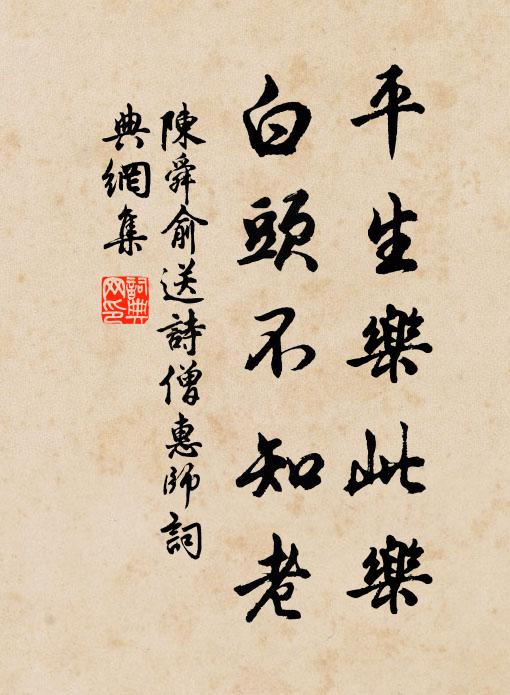 平生樂此樂
白頭不知老
陳舜俞送詩僧惠師詞
典網集
詞典网印